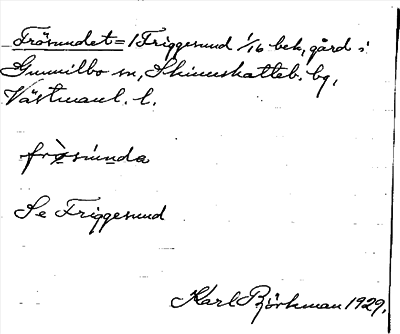 Frösundet = / Friggesund 1/16 bek, gård i
Gunnilbo sn, Skinnskatteb. bg,
Västmanl. l.
frösúnda
Se Friggesund
Karl Björkman 1929.